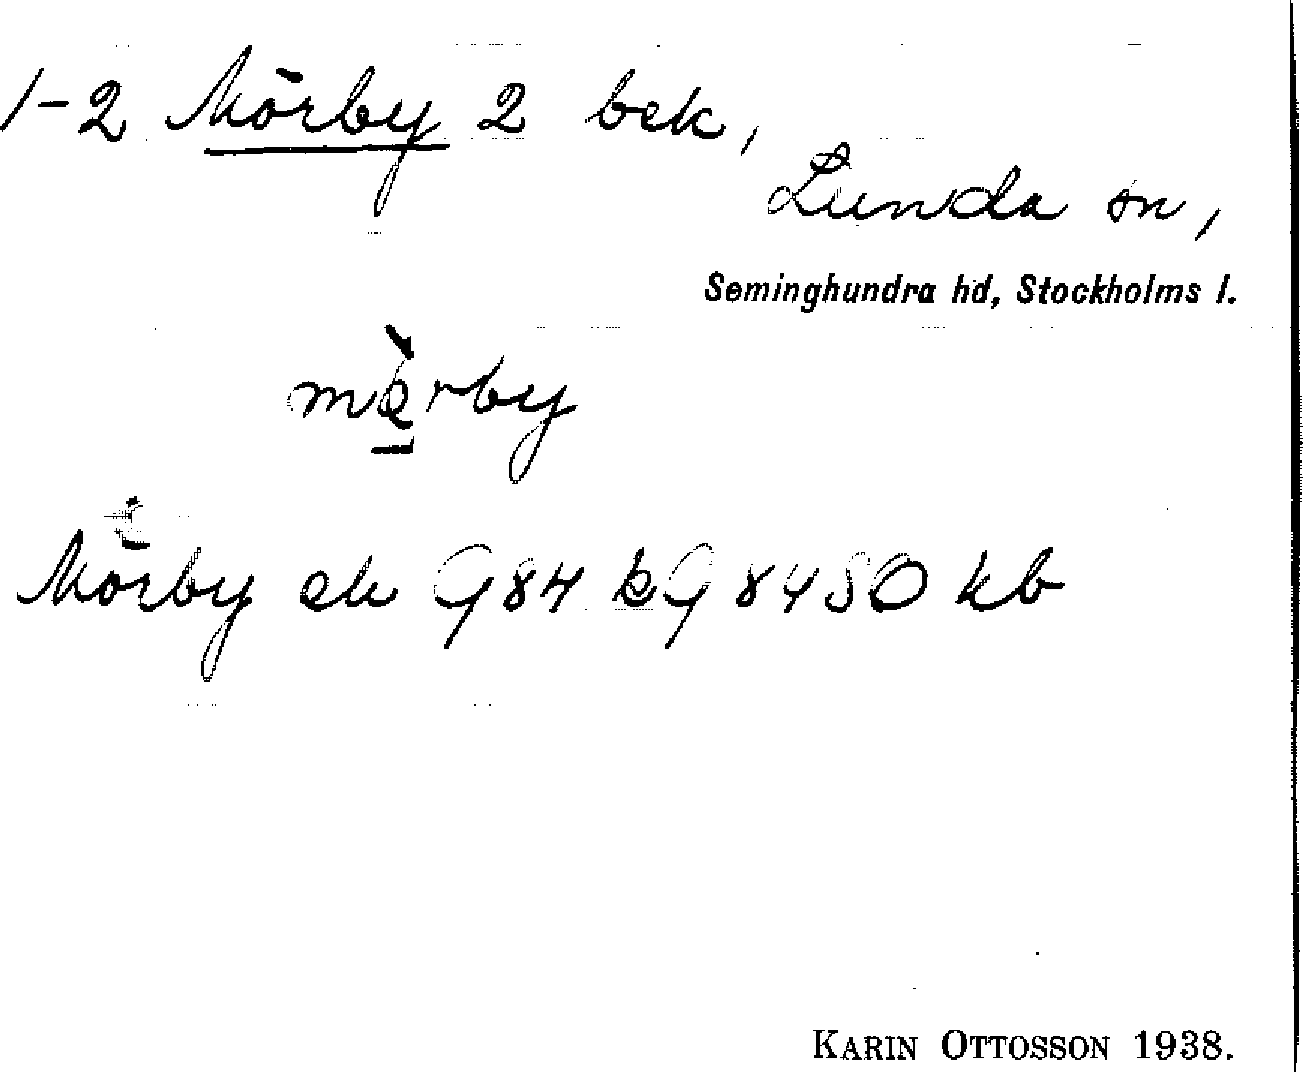 1-2 Mörby 2 bek,
Lunda sn,
Seminghundra hd, Stockholms l.
mö̀rby
Mörby ek G84 kG 8450 kb
KARIN OTTOSSON 1938.